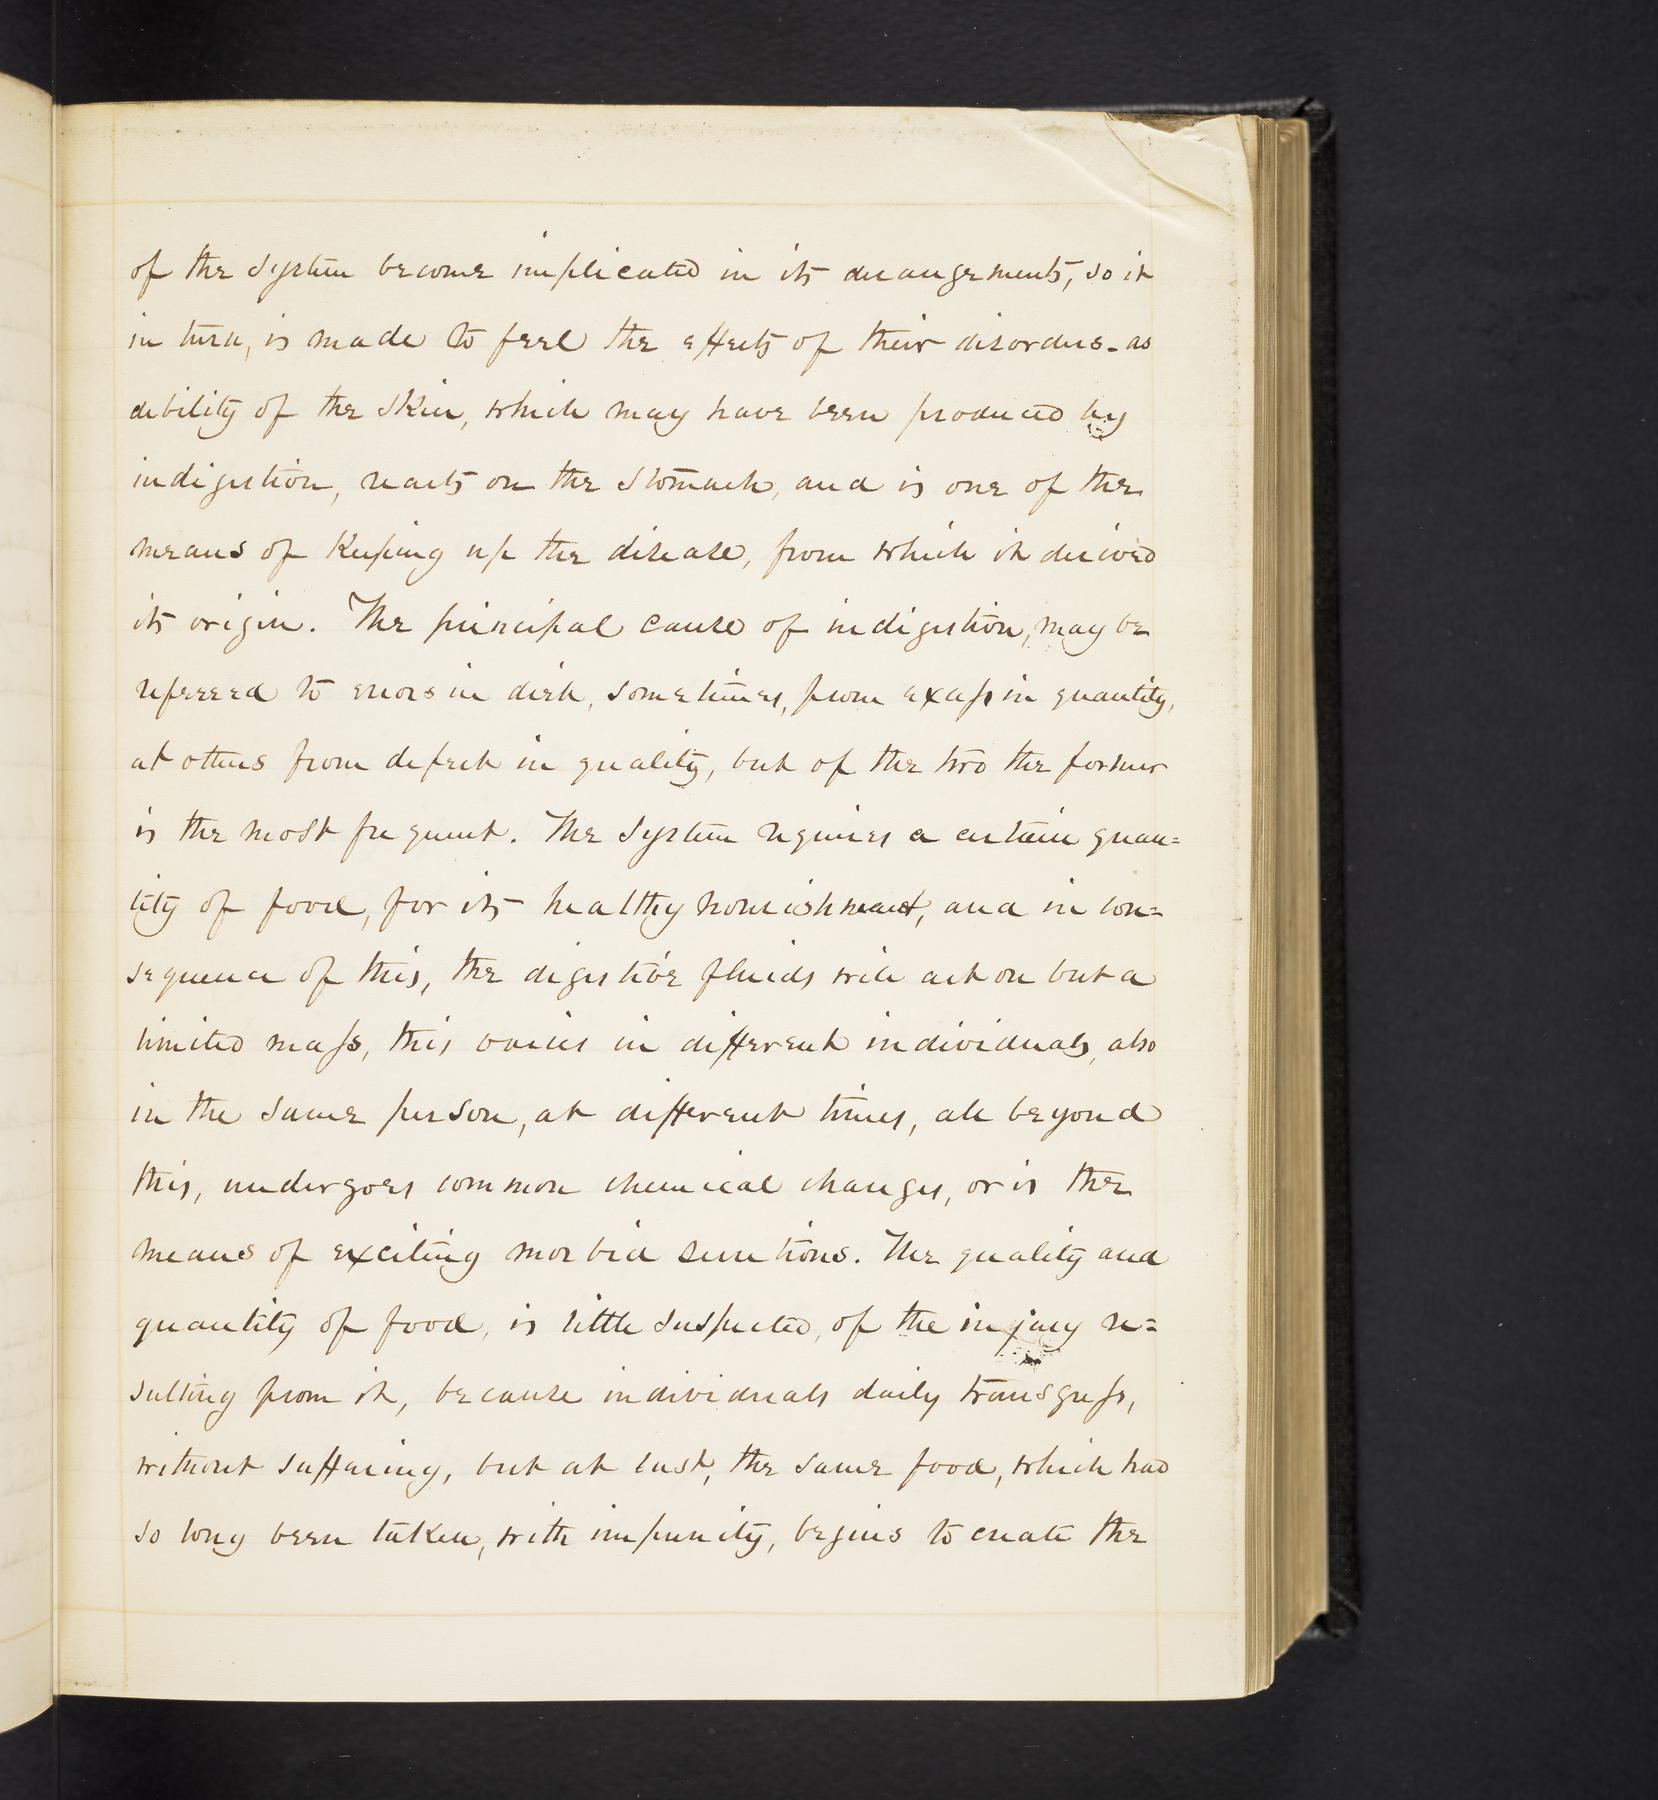 of the system become implicated in its derangements, so it
in turn, is made to feel the effects of their disorders - as
debility of the skin, which may have been produced by
indigestion, reacts on the stomach, and is one of the
means of keeping up the disease, from which it derived
its origin. The principal cause of indigestion, may be
refereed to errors in diet, sometimes, from excess in quantity,
at others from defect in quality, but of the two the former
is the most frequent. The system requires a certain quan=
tity of food, for its healthy nourishment, and in con=
sequence of this, the digestive fluids will act on but a
limited mass, this varies in different individuals, also
in the same person, at different times, all beyond
this, undergoes common chemical changes, or is the
means of exciting morbid secretions. The quality and
quantity of food, is little suspected, of the injury re=
sulting from it, because individuals daily transgress,
without suffering, but at last, the same food, which had
so long been taken, with impunity, begins to create the